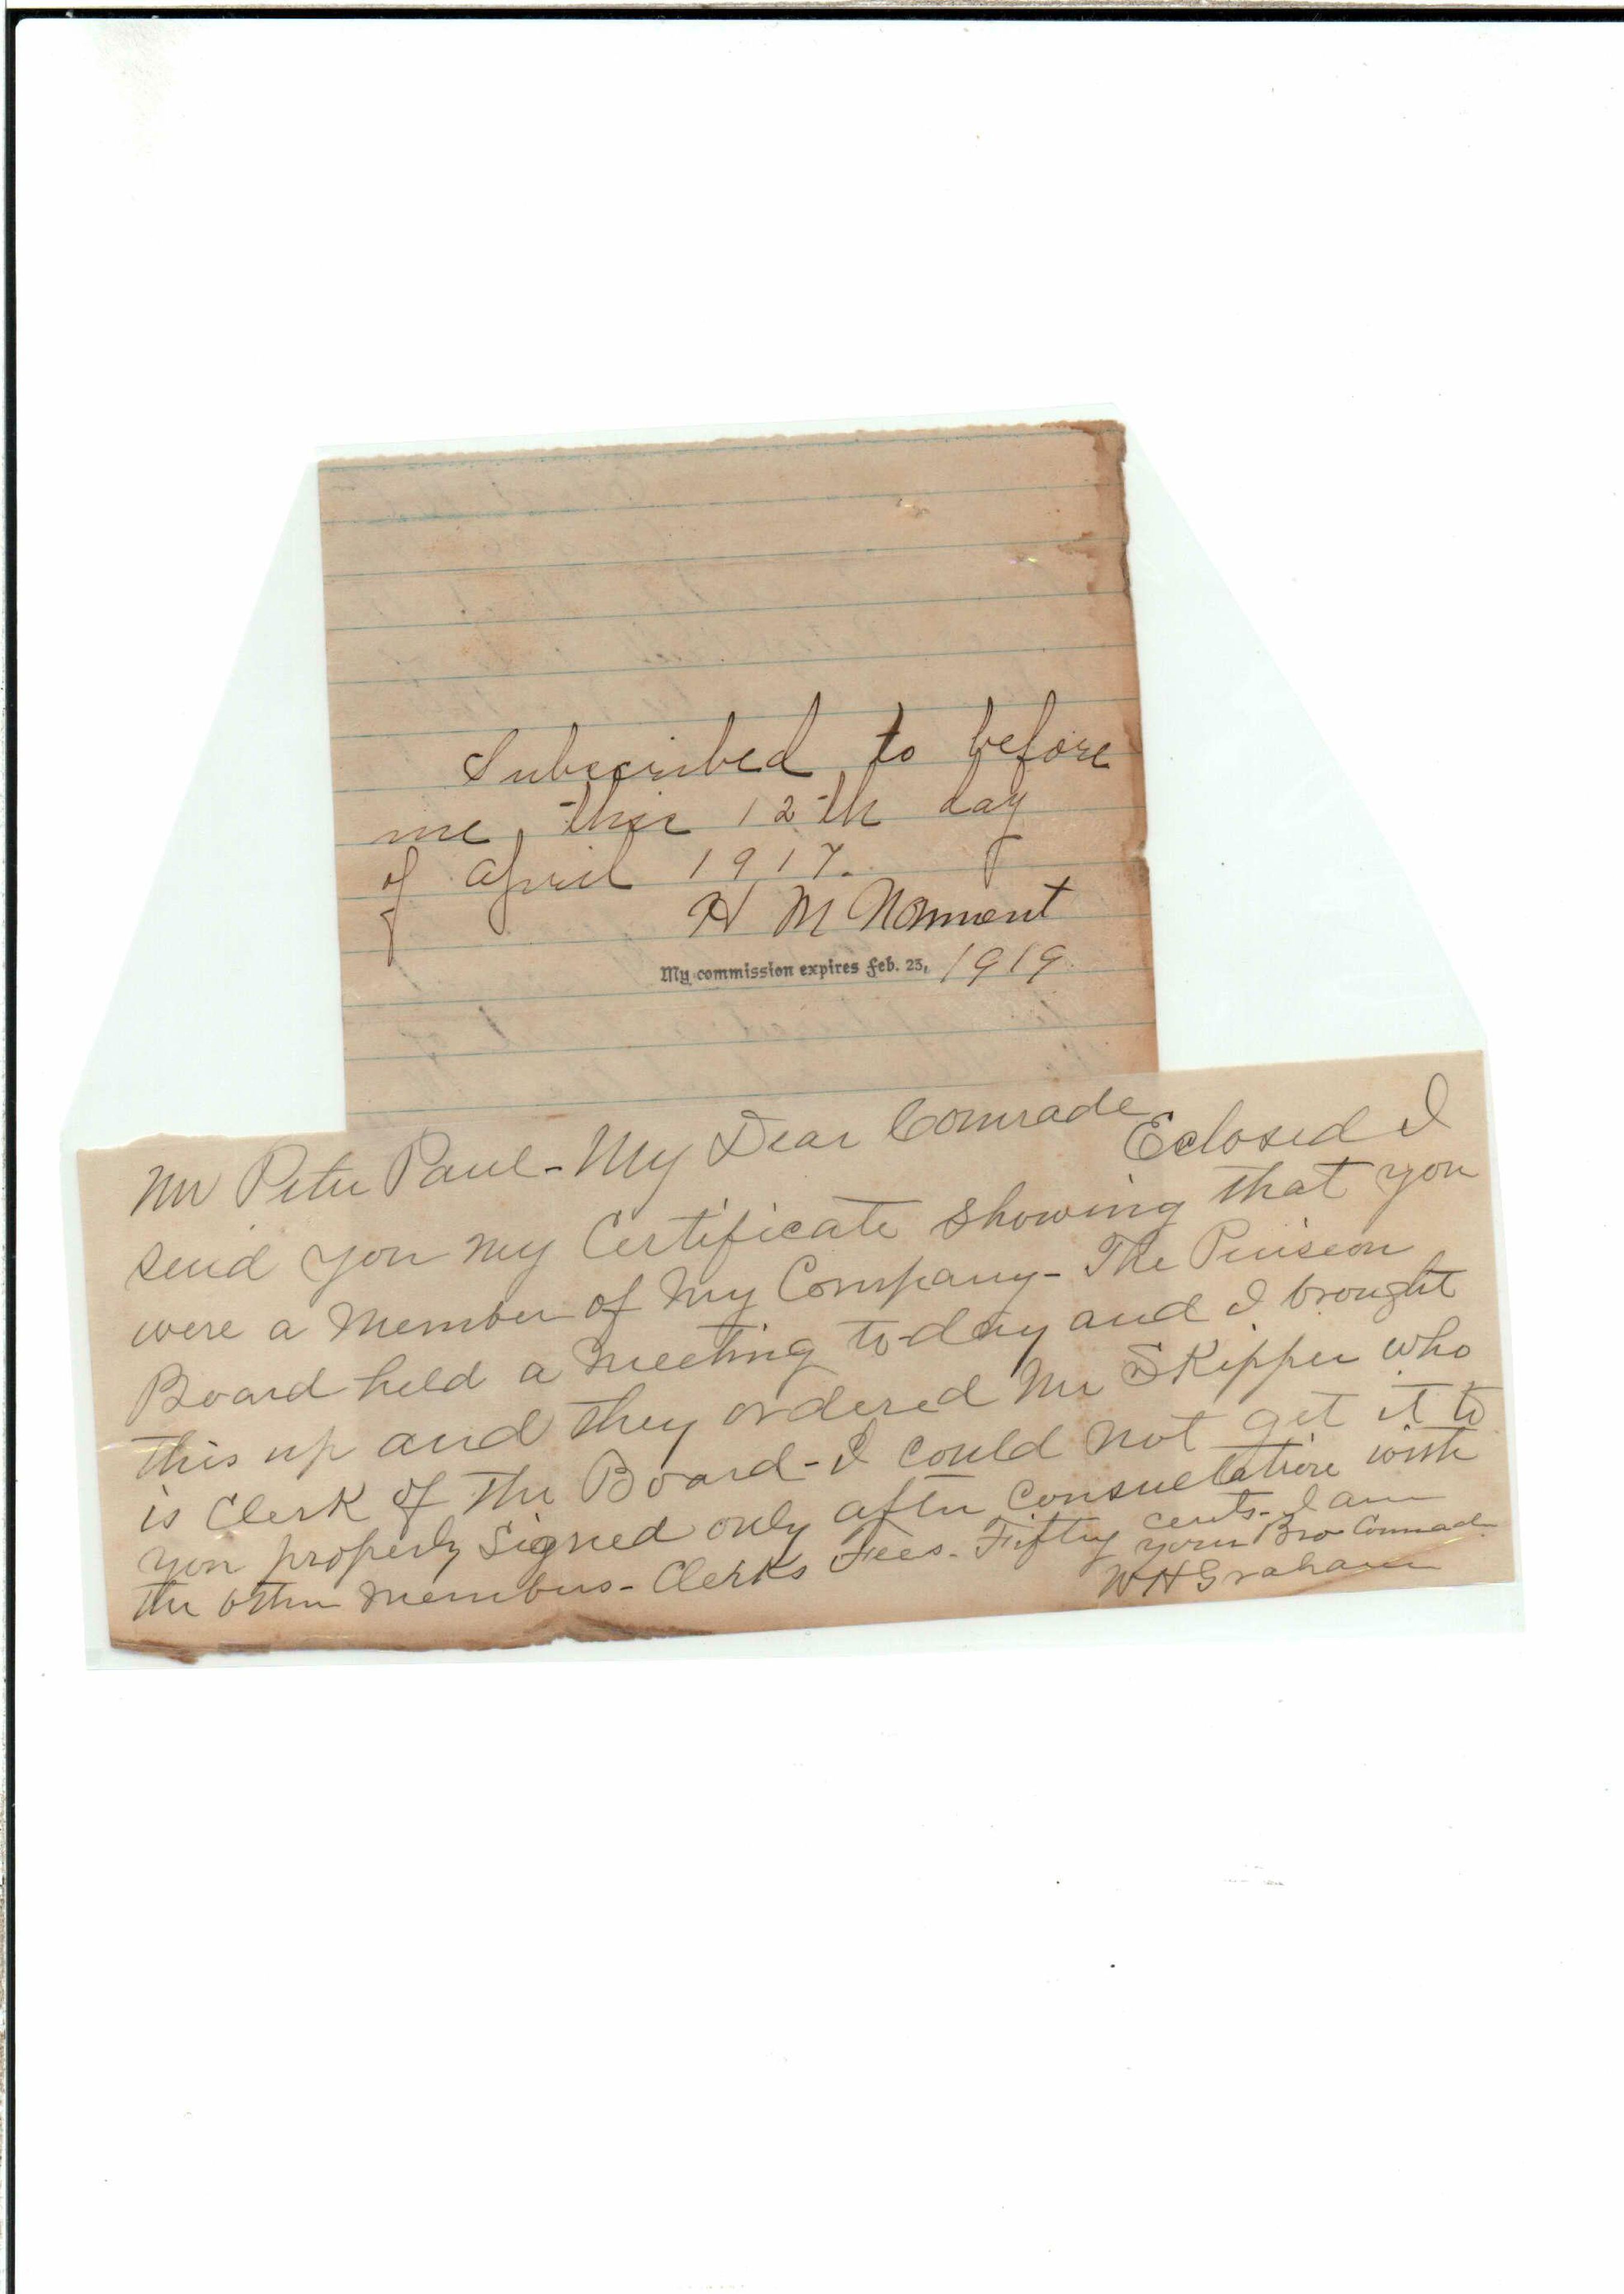 Subscribed to before
me this 12th day
of April 1917.
H M Norment
My commission expires Feb. 23, 1919.
Mr Peter Paul - My Dear Comrade
Eclosed I
send you my Certificate showing that you
were a Member of My Company - The Pension
Board held a meeting to-day and I brought
this up and they ordered Mr Skipper who
is Clerk of the Board - I could not get it to
you properly signed only after Consultation with
the other members - Clerks Fees - Fifty cents - I am
your Bro Comrad
W H Graham